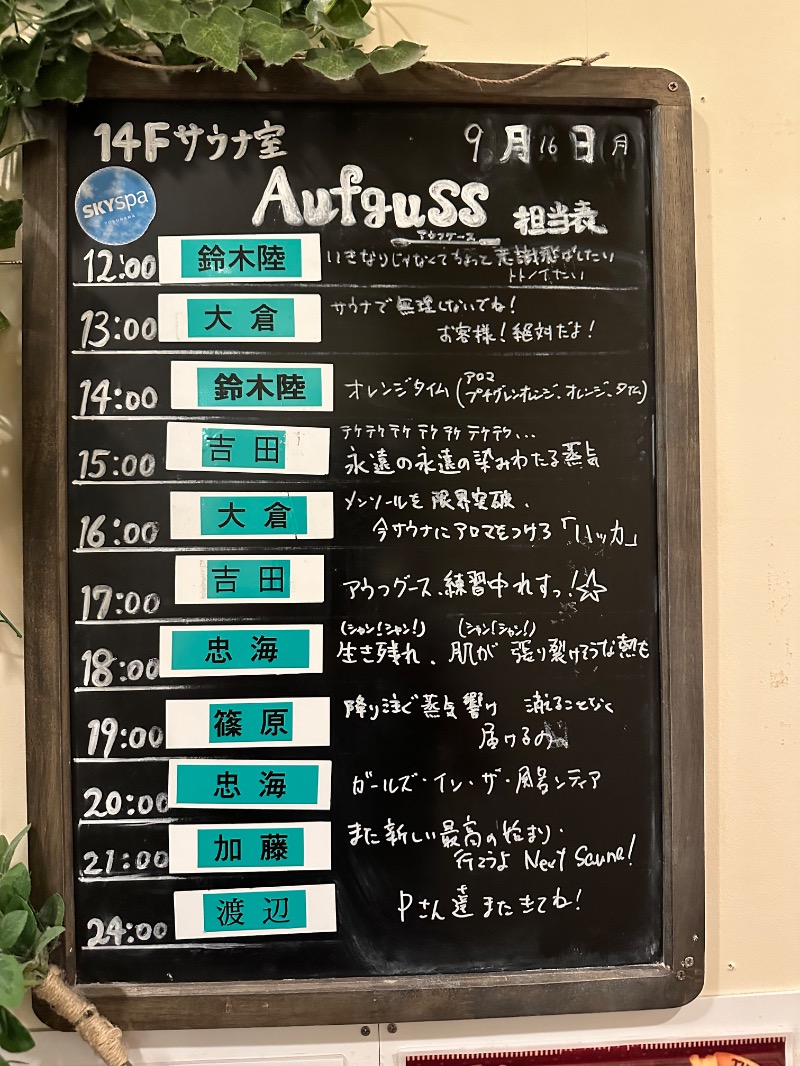 14Fサウナ室
9月16日 月
SKYspa
YOKOHAMA
Aufguss 担当表
アウフグース
12:00 鈴木陸 いきなりじゃなくてちょって意識飛ばしたい
トトノイたい
13:00 大倉 サウナで無理しないでね!
お客様!絶対だよ!
14:00 鈴木陸 オレンジタイム(アロマ プチグレンオレンジ、オレンジ、タイム)
15:00 吉田 テケテケテケ テケ テケ テケテケ...
永遠の永遠の染みわたる蒸気
16:00 大倉 メンソールを限界突破、
今サウナにアロマをつける「ハッカ」
17:00 吉田 アウフグース、練習中れすっ!☆
18:00 忠海 (シャン!シャン!) (シャン!シャン!)
生き残れ、肌が 張り裂けそうな熱も
19:00 篠原 降り注ぐ蒸気響け 消えることなく
届けるの
20:00 忠海 ガールズ・イン・ザ・風呂ンティア
21:00 加藤 また新しい最高の始まり・
行こうよ Next Sauna!
24:00 渡辺 Pさん達またきてね!